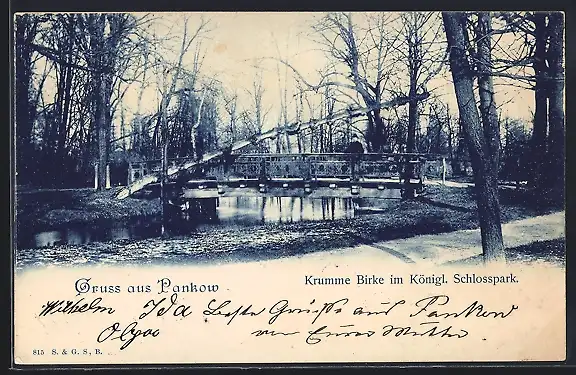 Gruss aus Pankow
Krumme Birke im Königl. Schlosspark.
Wilhelm Ida Beste Grüsse aus Pankow
Olga von Eurer Mutter
815 S. & G. S., B.